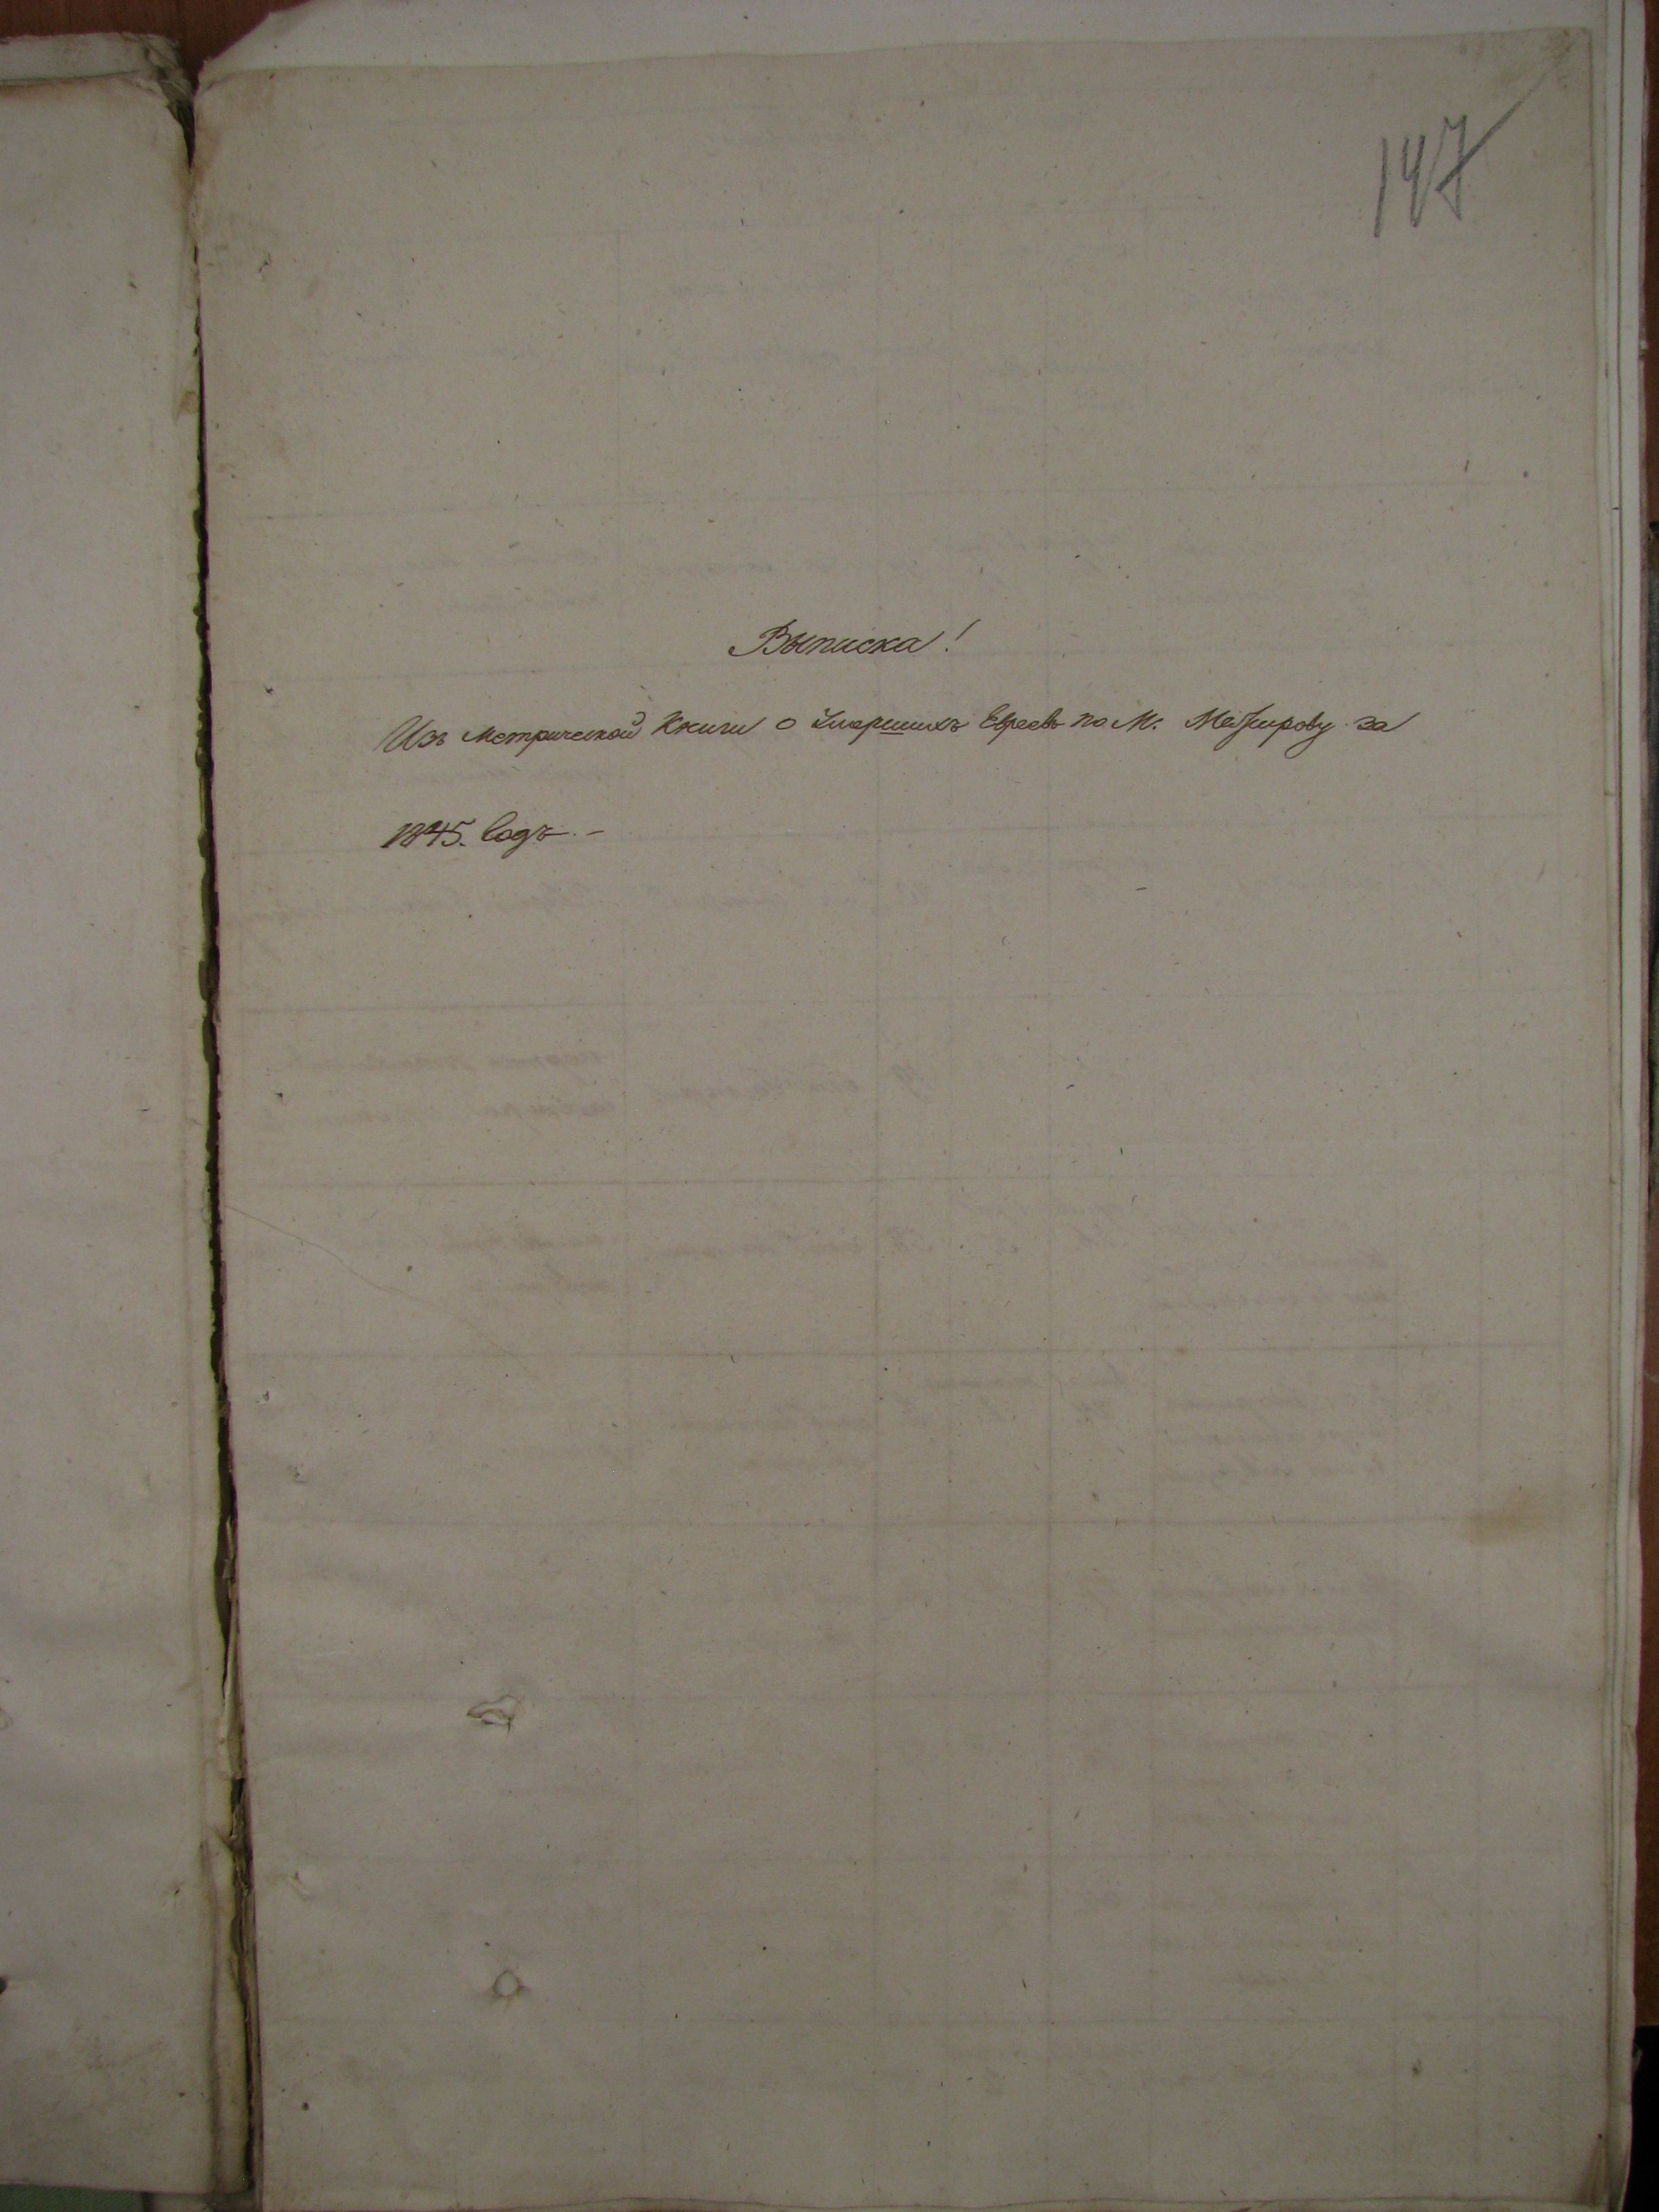 147
Выписка!
Изъ Метрической Книги о Умершихъ Евреевъ по М. Межирову за
1845. Годъ. –